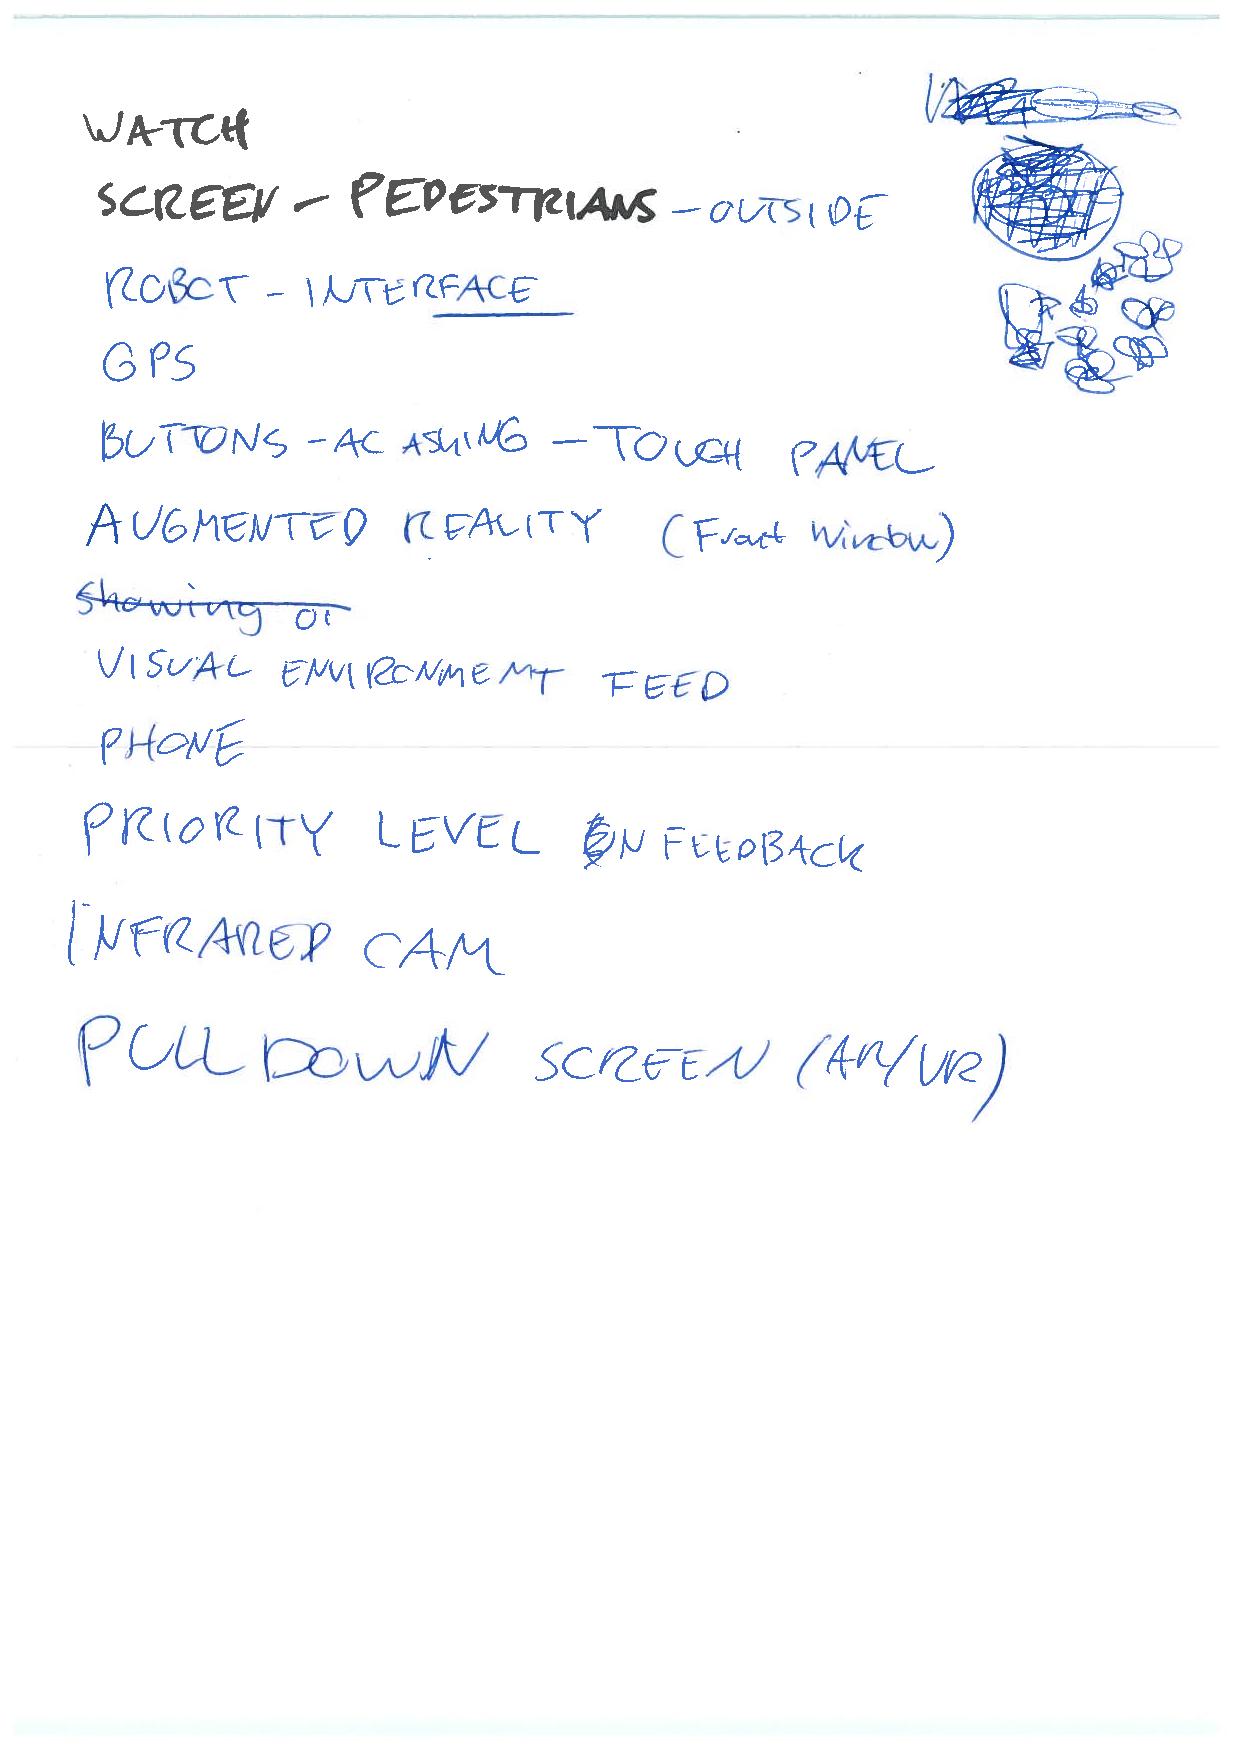 WATCH
SCREEN - PEDESTRIANS - OUTSIDE
ROBOT - INTERFACE
GPS
BUTTONS - AC - TOUCH PANEL
AUGMENTED REALITY (Front Window)
showing or
VISUAL ENVIRONMENT FEED
PHONE
PRIORITY LEVEL ON FEEDBACK
INFRARED CAM
PULL DOWN SCREEN (AR/VR)